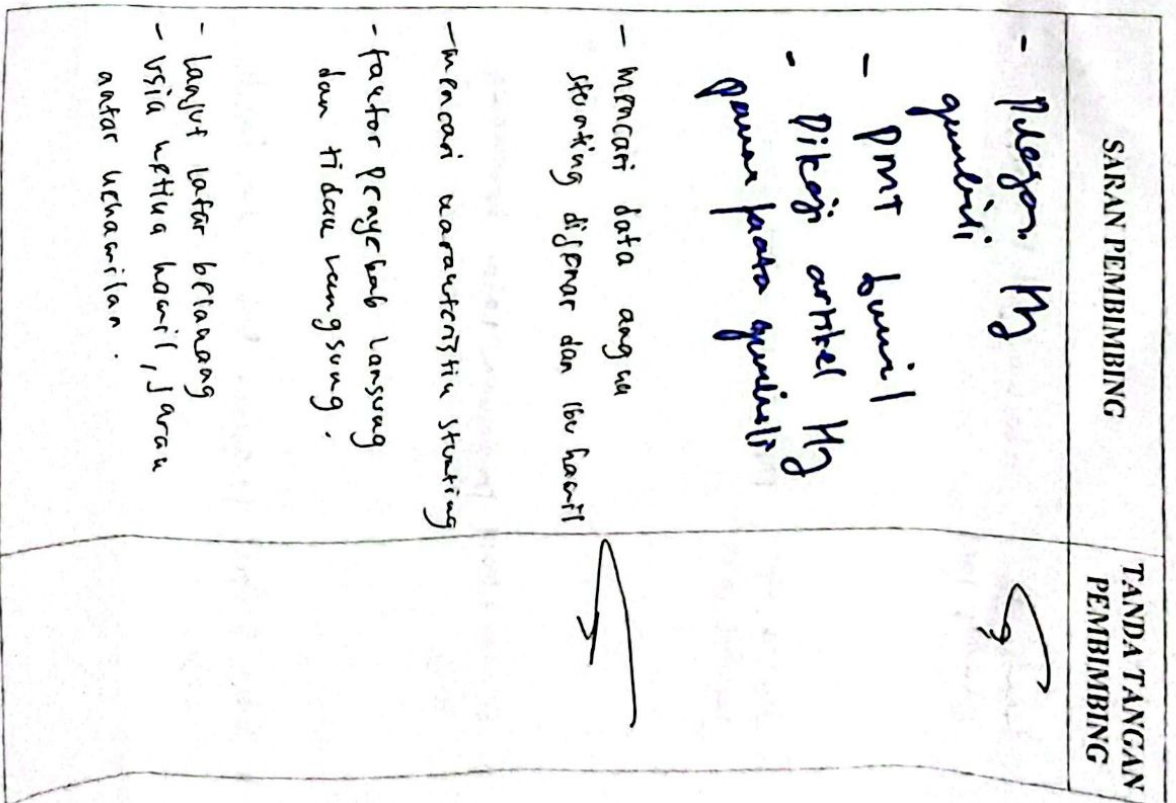 SARAN PEMBIMBING
TANDA TANGAN
PEMBIMBING
-
- PMT bumil
- Dikaji artikel
- mencari data angka
stunting dijenar dan ibu hamil
- mencari karakteristik stunting
- faktor penyebab lansung
dan tidak langsung.
- lanjut latar belakang
- usia ketika hamil, Jarak
antar kehamilan.